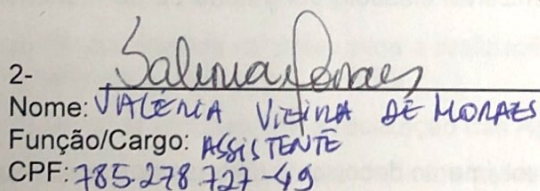 2- Valeria Moraes
Nome: VALÉRIA VIEIRA DE MORAES
Função/Cargo: ASSISTENTE
CPF: 785.278.727-49